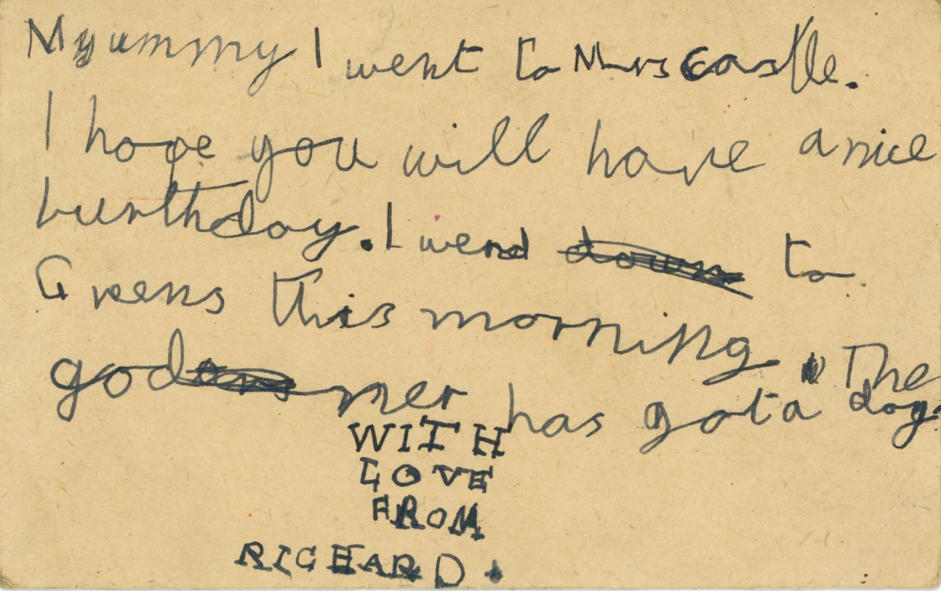 Myummy I went to Mrs castle.
I hope you will have a nice
burthday. I wend down to
Greens this morning. The
god mer has got a dog.
WITH
LOVE
FROM
RICHARD.